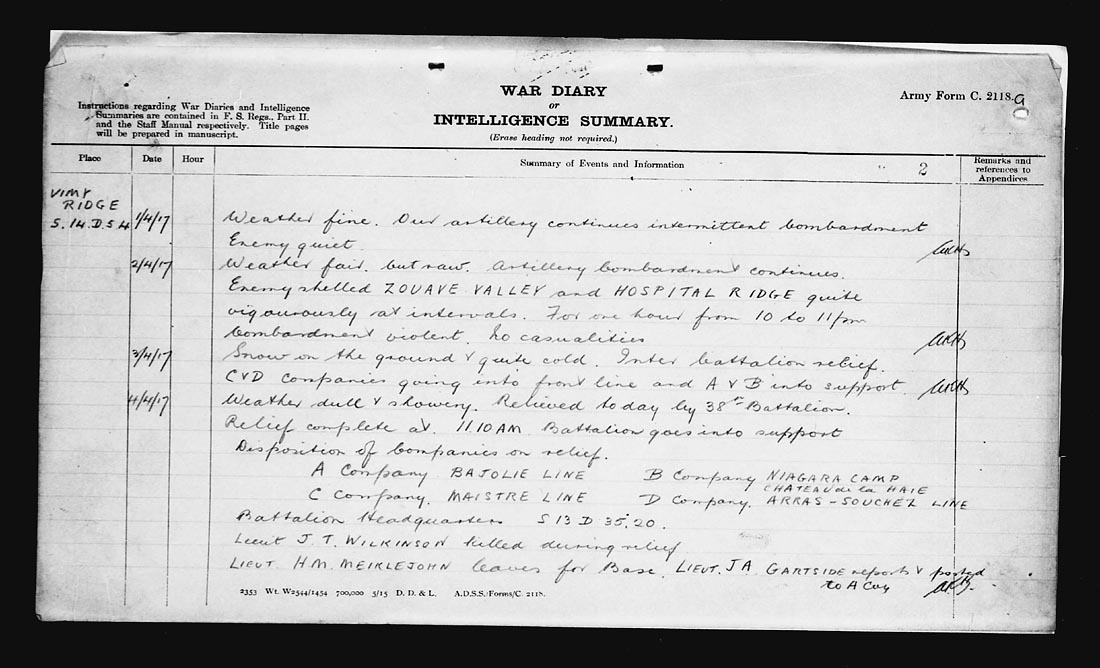 WAR DIARY
or
INTELLIGENCE SUMMARY.
(Erase heading not required.)
Army Form C. 2118.
Instructions regarding War Diaries and Intelligence
Summaries are contained in F. S. Regs., Part II.
and the Staff Manual respectively. Title pages
will be prepared in manuscript.
Place Date Hour Summary of Events and Information 2 Remarks and
references to
Appendices
VIMY
RIDGE
S.14.D.5.4 1/4/17 Weather fine. Our artillery continues intermittent bombardment
Enemy quiet.
2/4/17 Weather fair. but raw. Artillery bombardment continues.
Enemy shelled ZOUAVE VALLEY and HOSPITAL RIDGE quite
vigourously at intervals. For one hour from 10 to 11 pm
bombardment violent. No casualities
3/4/17 Snow on the ground & quite cold. Inter battalion relief.
C & D companies going into front line and A & B into support.
4/4/17 Weather dull & showery. Relieved today by 38th Battalion.
Relief complete at 11.10 AM. Battalion goes into support
Disposition of companies on relief.
A Company BAJOLIE LINE B Company NIAGARA CAMP
CHATEAU de la HAIE
C Company. MAISTRE LINE D Company. ARRAS - SOUCHEZ LINE
Battalion Headquarters S 13 D 35.20.
Lieut J. T. WILKINSON killed during relief
LIEUT. H.M. MEIKLEJOHN leaves for Base. LIEUT. J A. GARTSIDE reports & posted
to A Coy
2353 Wt. W2544/1454 700,000 5/15 D. D. & L. A.D.S.S./Forms/C. 2118.